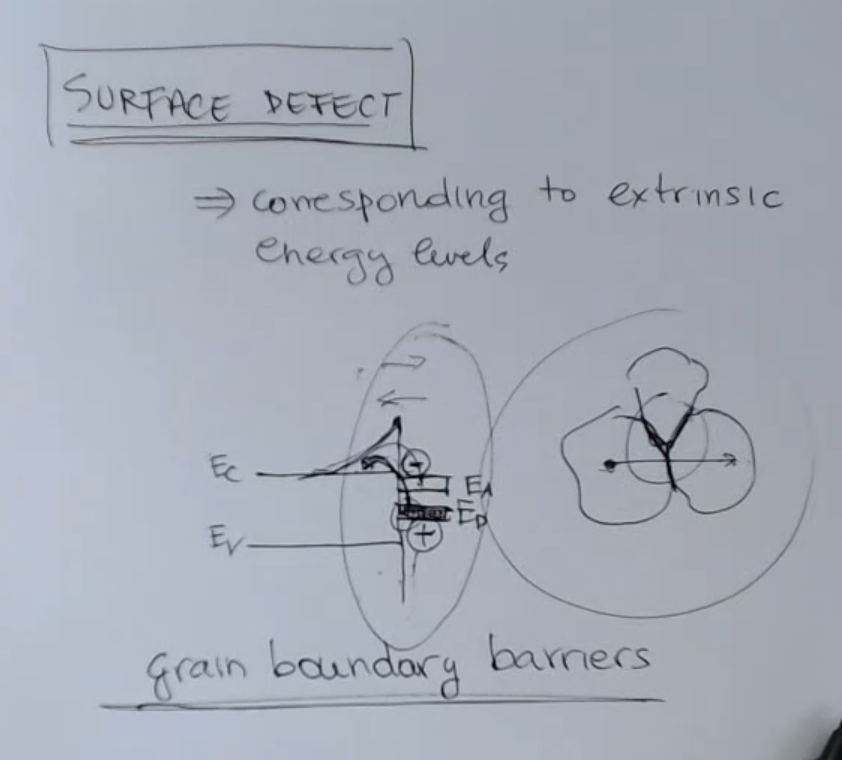 SURFACE DEFECT
⇒ corresponding to extrinsic
energy levels
EC
EA
ED
EV
grain boundary barriers